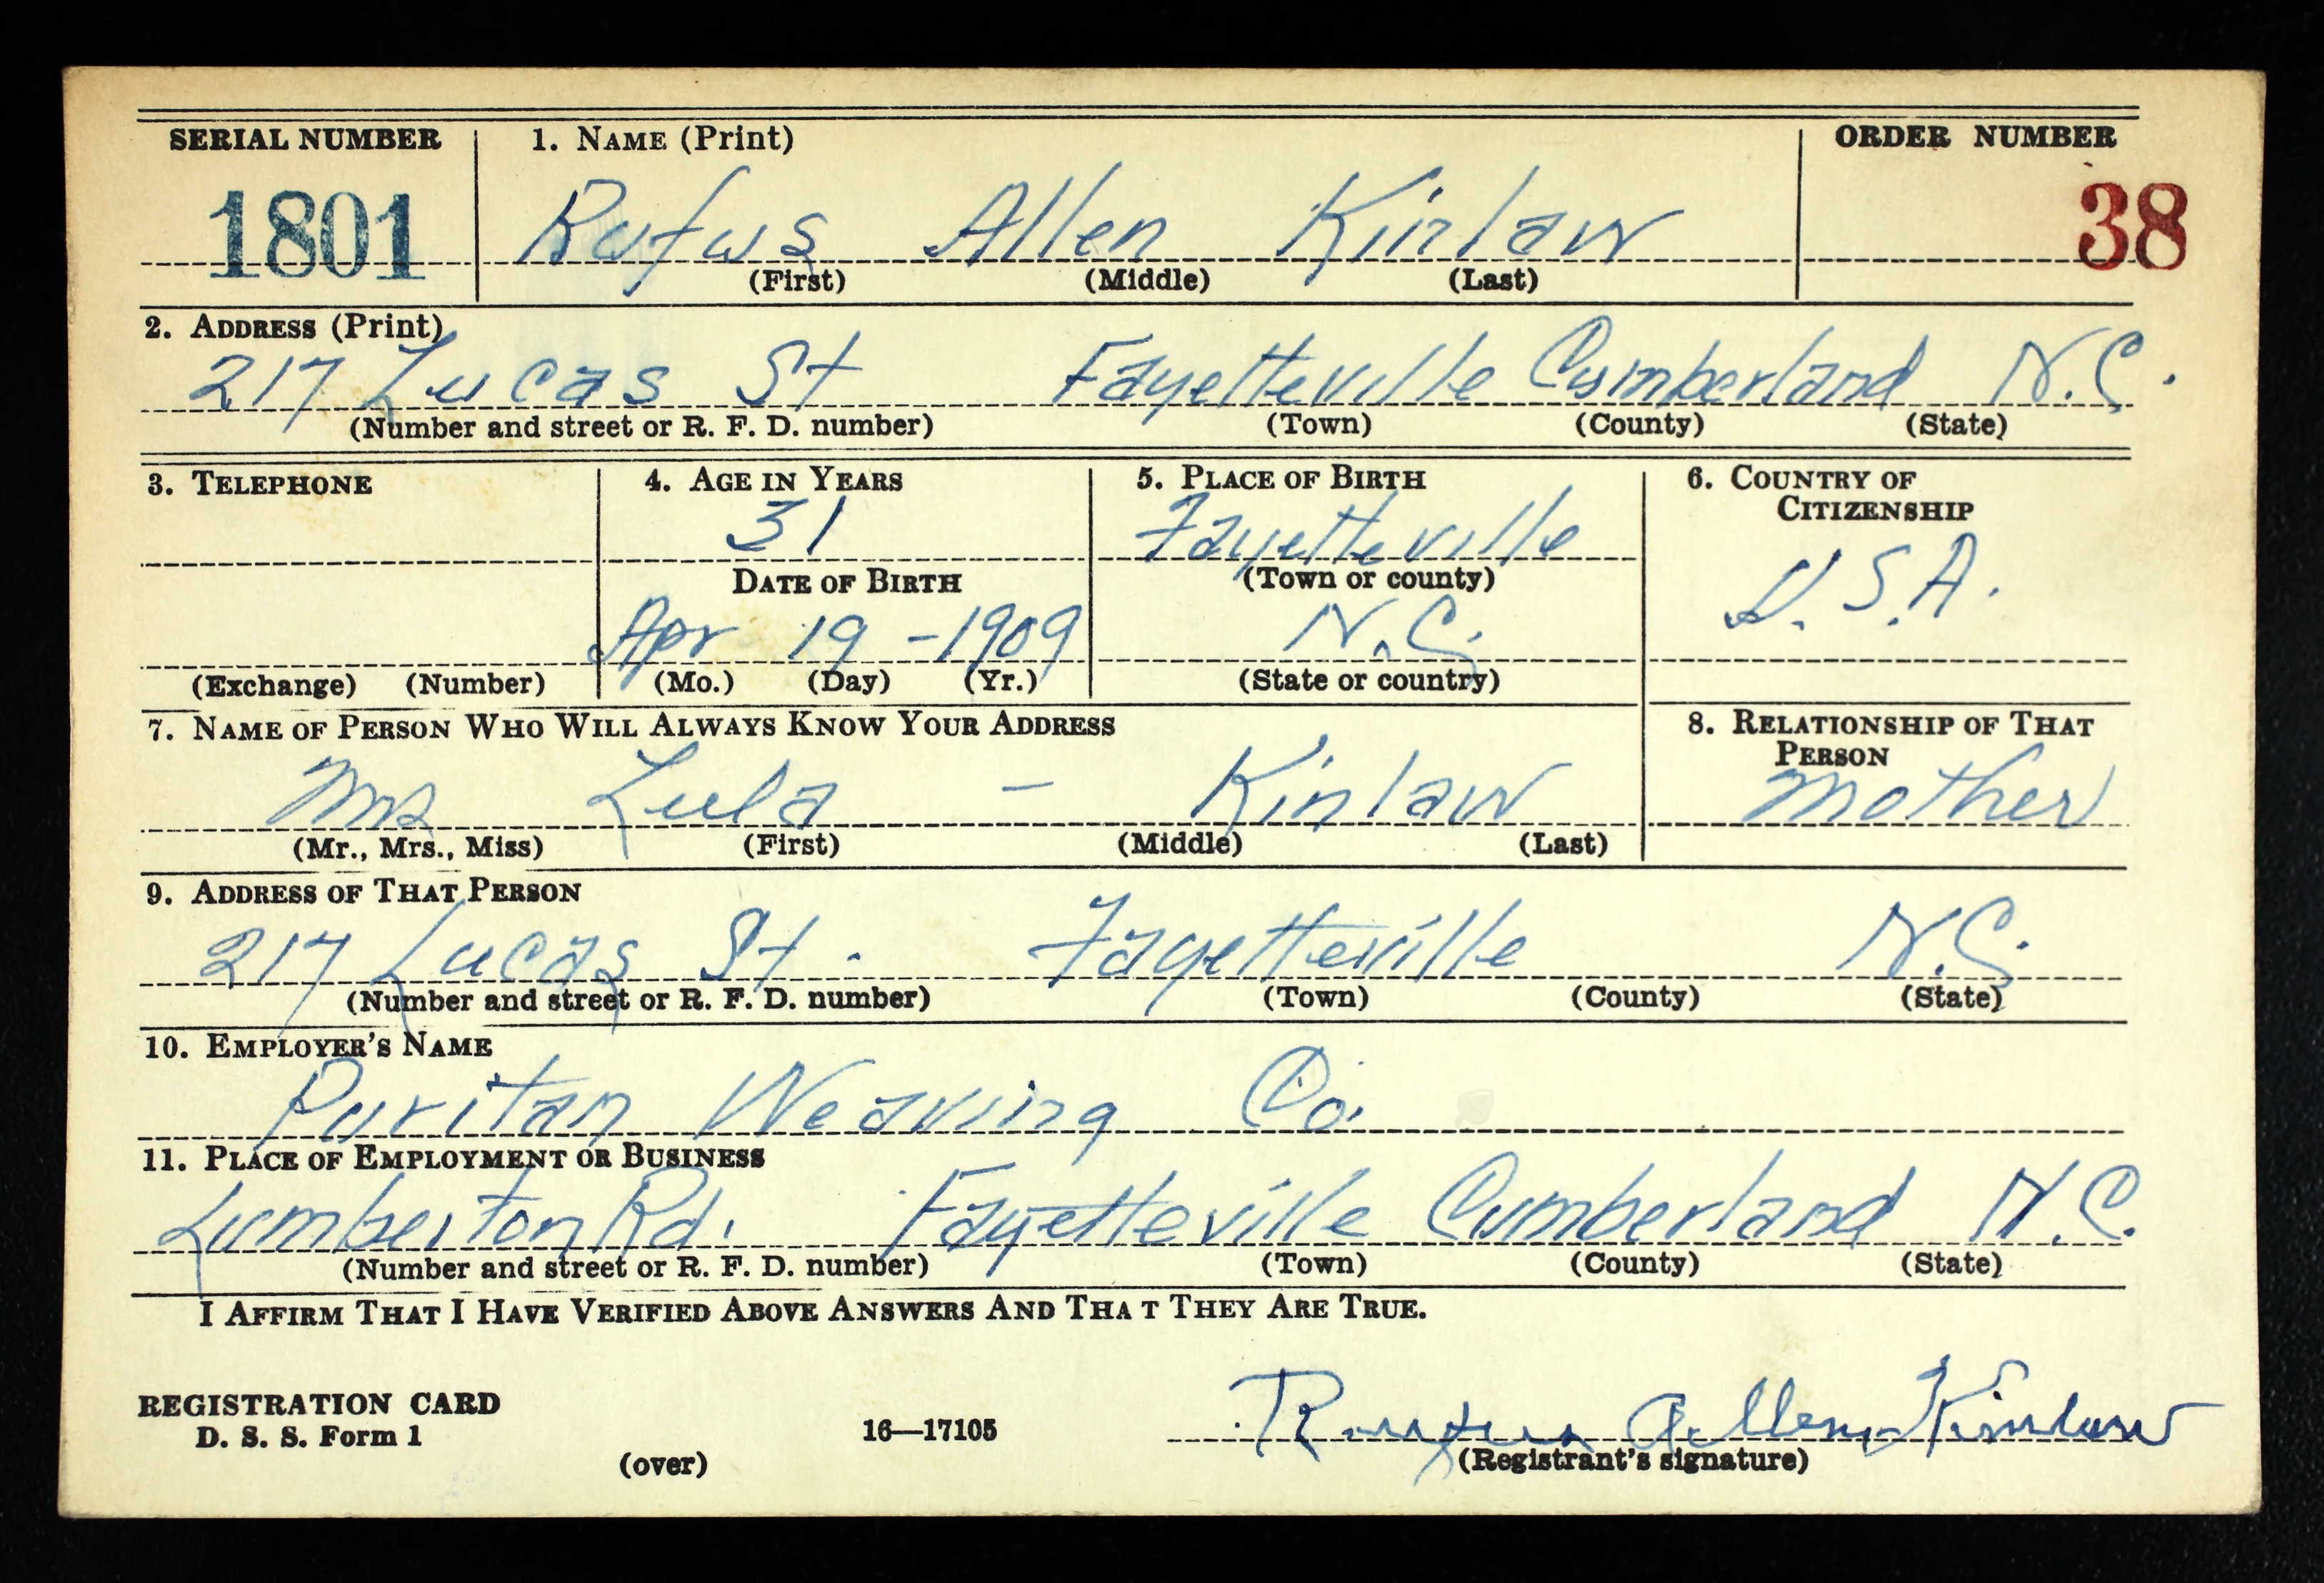 SERIAL NUMBER 1. NAME (Print) ORDER NUMBER
1801 Rufus Allen Kinlaw 38
(First) (Middle) (Last)
2. ADDRESS (Print)
217 Lucas St Fayetteville Cumberland N.C.
(Number and street or R. F. D. number) (Town) (County) (State)
3. TELEPHONE 4. AGE IN YEARS 5. PLACE OF BIRTH 6. COUNTRY OF
CITIZENSHIP
31 Fayetteville
DATE OF BIRTH (Town or county) U.S.A.
Apr 19 -1909 N.C.
(Exchange) (Number) (Mo.) (Day) (Yr.) (State or country)
7. NAME OF PERSON WHO WILL ALWAYS KNOW YOUR ADDRESS 8. RELATIONSHIP OF THAT
PERSON
Mrs Lula - Kinlaw Mother
(Mr., Mrs., Miss) (First) (Middle) (Last)
9. ADDRESS OF THAT PERSON
217 Lucas St. Fayetteville N.C.
(Number and street or R. F. D. number) (Town) (County) (State)
10. EMPLOYER'S NAME
Puritan Weaving Co.
11. PLACE OF EMPLOYMENT OR BUSINESS
Lumberton Rd. Fayetteville Cumberland N.C.
(Number and street or R. F. D. number) (Town) (County) (State)
I AFFIRM THAT I HAVE VERIFIED ABOVE ANSWERS AND THA T THEY ARE TRUE.
REGISTRATION CARD
D. S. S. Form 1 16—17105 Rufus Allen Kinlaw
(over) (Registrant's signature)